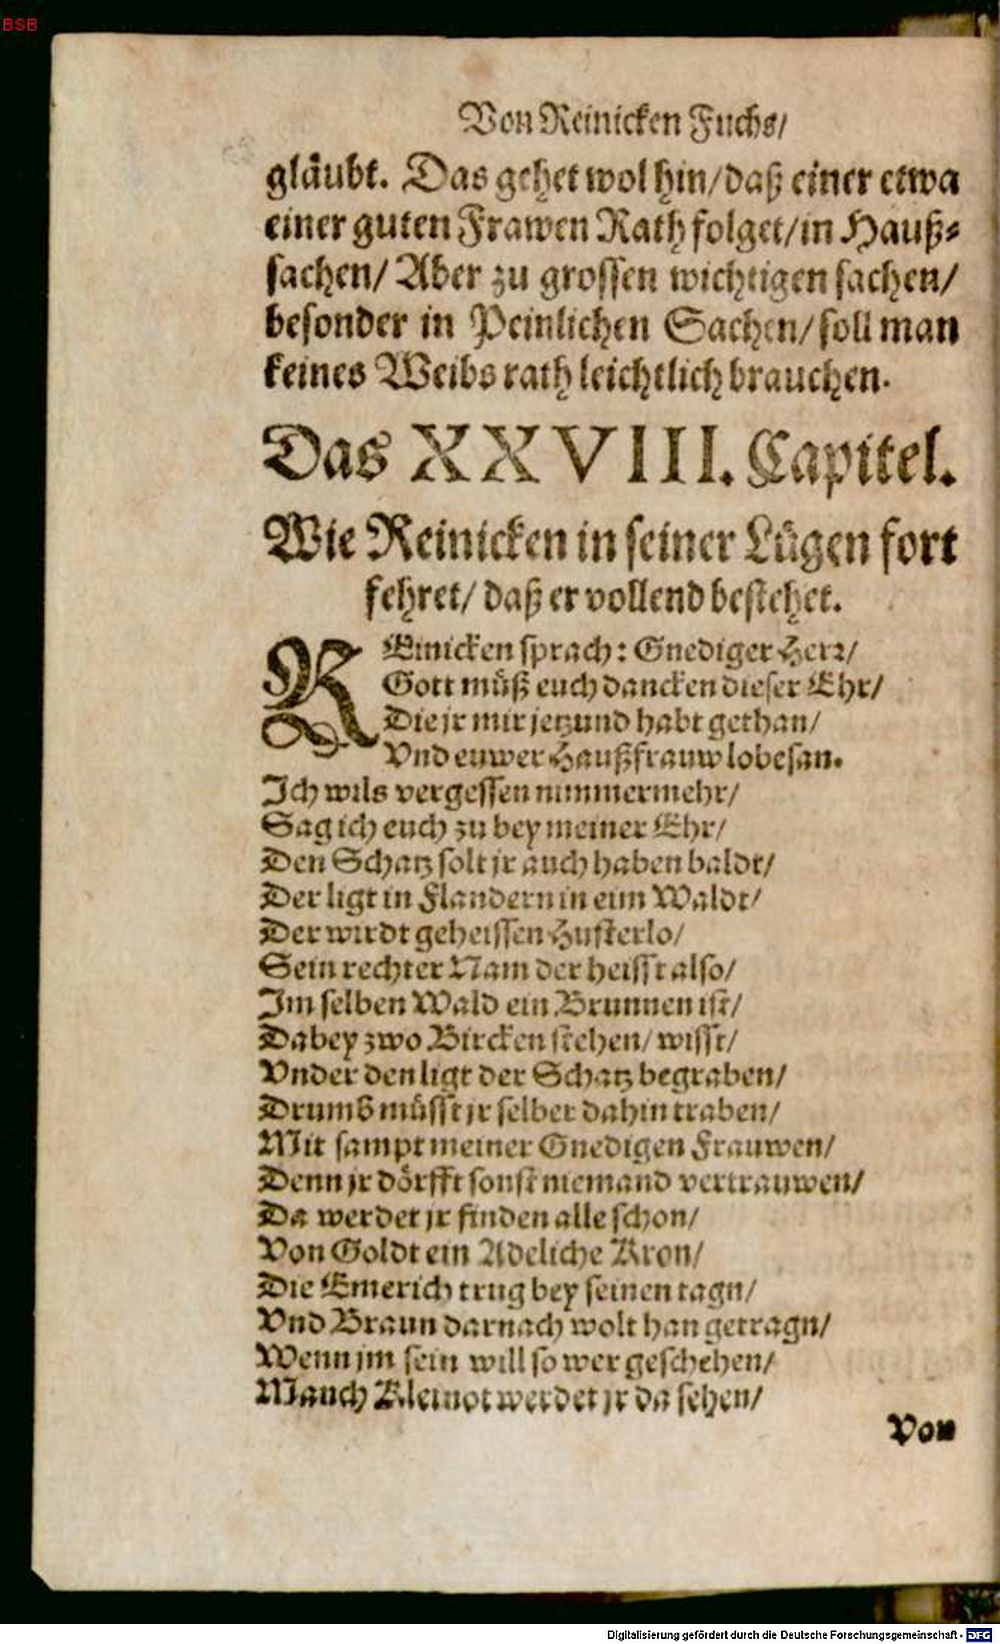 BSB
Von Reinicken Fuchs/
gläubt. Das gehet wol hin/daß einer etwa
einer guten Frawen Rath folget/in Hauß⸗
sachen/ Aber zu grossen wichtigen sachen/
besonder in Peinlichen Sachen/soll man
keines Weibs rath leichtlich brauchen.
Das XXVIII. Capitel.
Wie Reinicken in seiner Lügen fort
fehret/ daß er vollend bestehet.
REinicken sprach: Gnediger Herr/
Gott müß euch dancken dieser Ehr/
Die jr mir jetzund habt gethan/
Vnd euwer Haußfrauw lobesan.
Ich wils vergessen nimmermehr/
Sag ich euch zu bey meiner Ehr/
Den Schatz solt jr auch haben baldt/
Der ligt in Flandern in eim Waldt/
Der wirdt geheissen Husterlo/
Sein rechter Nam der heisst also/
Im selben Wald ein Brunnen ist/
Dabey zwo Bircken stehen/ wisst/
Vnder den ligt der Schatz begraben/
Drumb müsst jr selber dahin traben/
Mit sampt meiner Gnedigen Frauwen/
Denn jr dörfft sonst niemand vertrauwen/
Da werdet jr finden alle schon/
Von Goldt ein Adeliche Kron/
Die Emerich trug bey seinen tagn/
Vnd Braun darnach wolt han getragn/
Wenn jm sein will so wer geschehen/
Manch Kleinot werdet jr da sehen/
Von
Digitalisierung gefördert durch die Deutsche Forschungsgemeinschaft - DFG